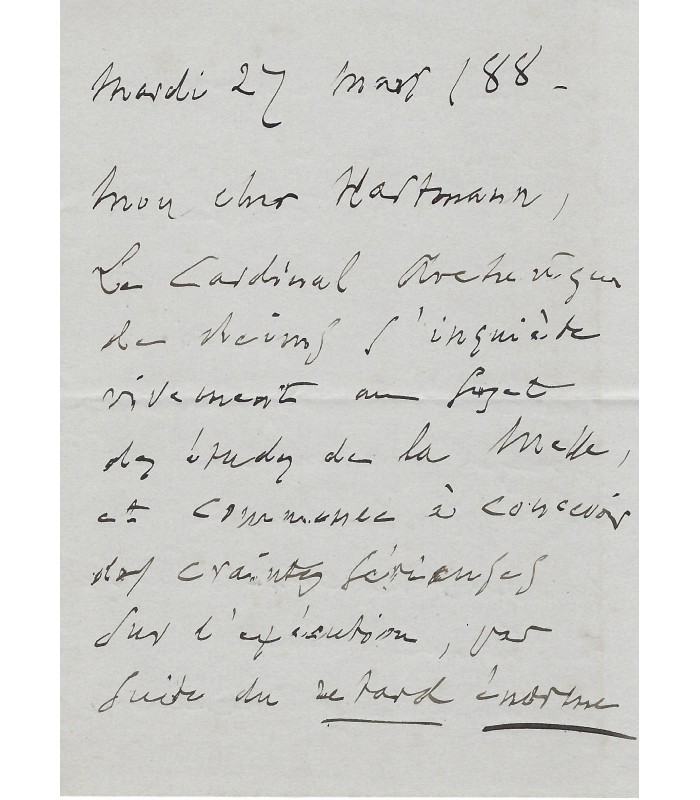 Mardi 27 Mars / 88 -
Mon cher Hartmann,
Le Cardinal Archevêque
de Reims s'inquiète
vivement au sujet
des études de la Messe,
et commence à concevoir
des craintes sérieuses
sur l'exécution, par
suite du retard énorme